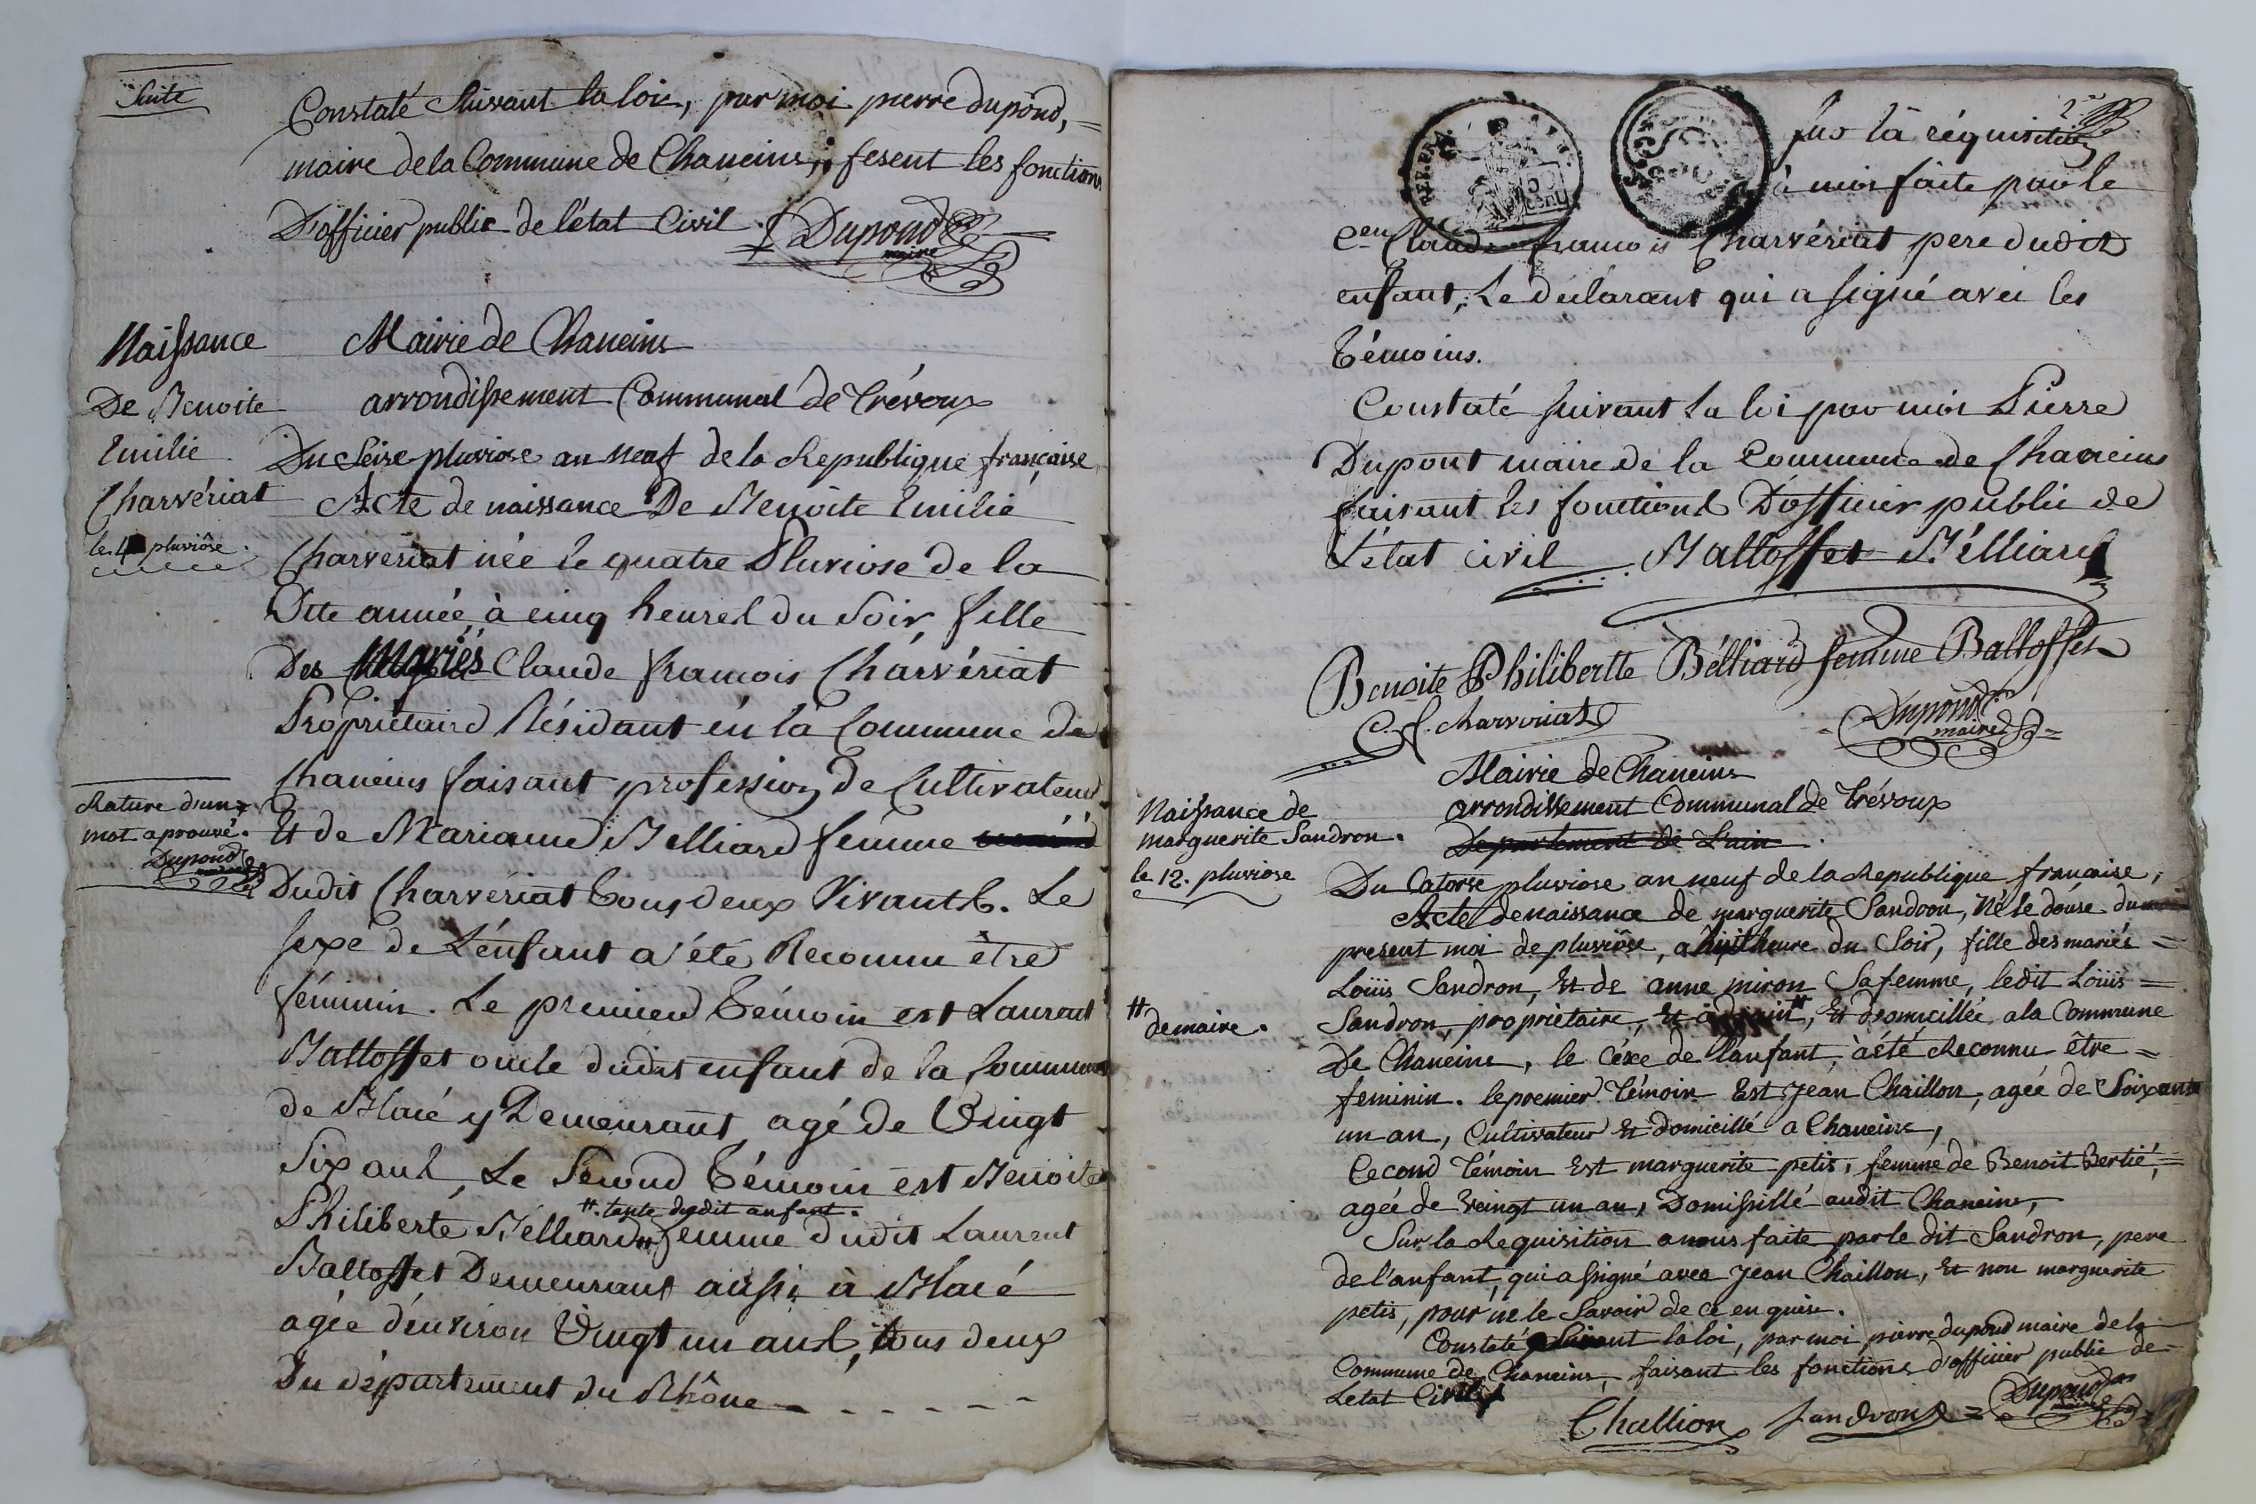 Suite
Constaté Suivant la loix, par moi pierre dupond,=
maire de la Commune de Chaneins, fesent les fonctions
D'officier public de l'état Civil Dupond
maire
Naissance
De Benoite
Emilie
Charvériat
le 4 pluviôse.
Mairie de Chaneins
arrondissement Communal de Trévoux
Du Seise pluviose an neuf de la Republique française
Acte de naissance De Benoite Emilie
Charvériat née le quatre Pluviose de la
Dite année, à cinq heures du Soir, fille
Des Mariés Claude francois Charvériat
Propriétaire Résidant en la Commune de
Chaneins faisant profession de Cultivateur
Et de Marianne Belliard femme
Dudit Charvériat tous deux Vivants. Le
sexe de L'énfant a été Reconnu être
féminin. Le premier témoin est Laurent
Balloffet oncle dudit enfant de la Commune
de Blacé y Demeurant agé de Vingt
Six ans, Le Second témoin est Benoite
#. tante dudit anfant.
Philiberte Bélliard # femme dudit Laurent
Balloffet Demeurant aussi à Blacé
agée d'environ Vingt un ans, tous deux
Du département du Rhône - - - - - -
Rature d'un
mot aprouvé.
Dupond
maire
REP. FRA.
50
CENT
2e
sur la réquisition
à moi faite par le
Cen Claude francois Charvériat pere dudit
enfant, Le déclarant qui a signé avec les
témoins.
Constaté suivant la loi par moi Pierre
Dupont maire de la Commune de Chaneins
faisant les fonctions D'officier public de
L'état civil Balloffet Bélliard
Benoite Philibertte Bélliard femme Balloffet
C. f. charveriat Dupond
maire
Mairie de Chaneins
arrondissement Communal de Trévoux
Departement de L'ain
Naissance de
marguerite Sandron.
le 12. pluviose
Du Catorse pluviose an neuf de la Republique française,
Acte de naissance de marguerite Sandron, Né le douse du
present moi de pluviôse, a huit heure du Soir, fille des mariés =
Loüis Sandron, Et de anne miron Sa femme, ledit Loüis =
Sandron, propriétaire, Et #, Et domicillée a la Commune
# demaire.
De Chaneins, le Cexe de l'anfant, à été Reconnu être =
feminin. le premier Témoin Est Jean Chaillon, agée de Soixante
un an, Cultivateur Et domicillé a Chaneins,
Cecond Témoin Est marguerite petis, femme de Benoit Bertié, =
agée de veingt un an, Domissillé audit Chaneins,
Sur la Requisition a nous faite par le dit Sandron, pere
de l'anfant, qui a signé avec Jean Chaillon, Et non marguerite
petis, pour ne le Savoir de ce enquise.
Constaté Suivant la loi, par moi pierre dupond maire de la
Commune de Chaneins, faisant les fonctions d'officier public de =
Letat Civil
Challion Sandron Dupond
maire